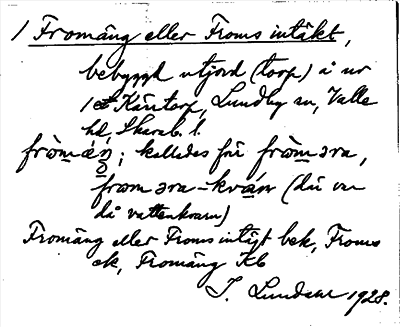 1 Fromäng eller Froms intäkt,
bebyggd utjord (torp) å nr
1 Käritorp, Lundby sn, Valle
hd, Skarab. l.
fròmǽŋ; kallades för fròmɔra,
fromɔra-kván (där var
då vattenkvarn)
Fromäng eller Froms intägt bek, Froms
ek, Fromäng Kb
J. Lundahl 1928.